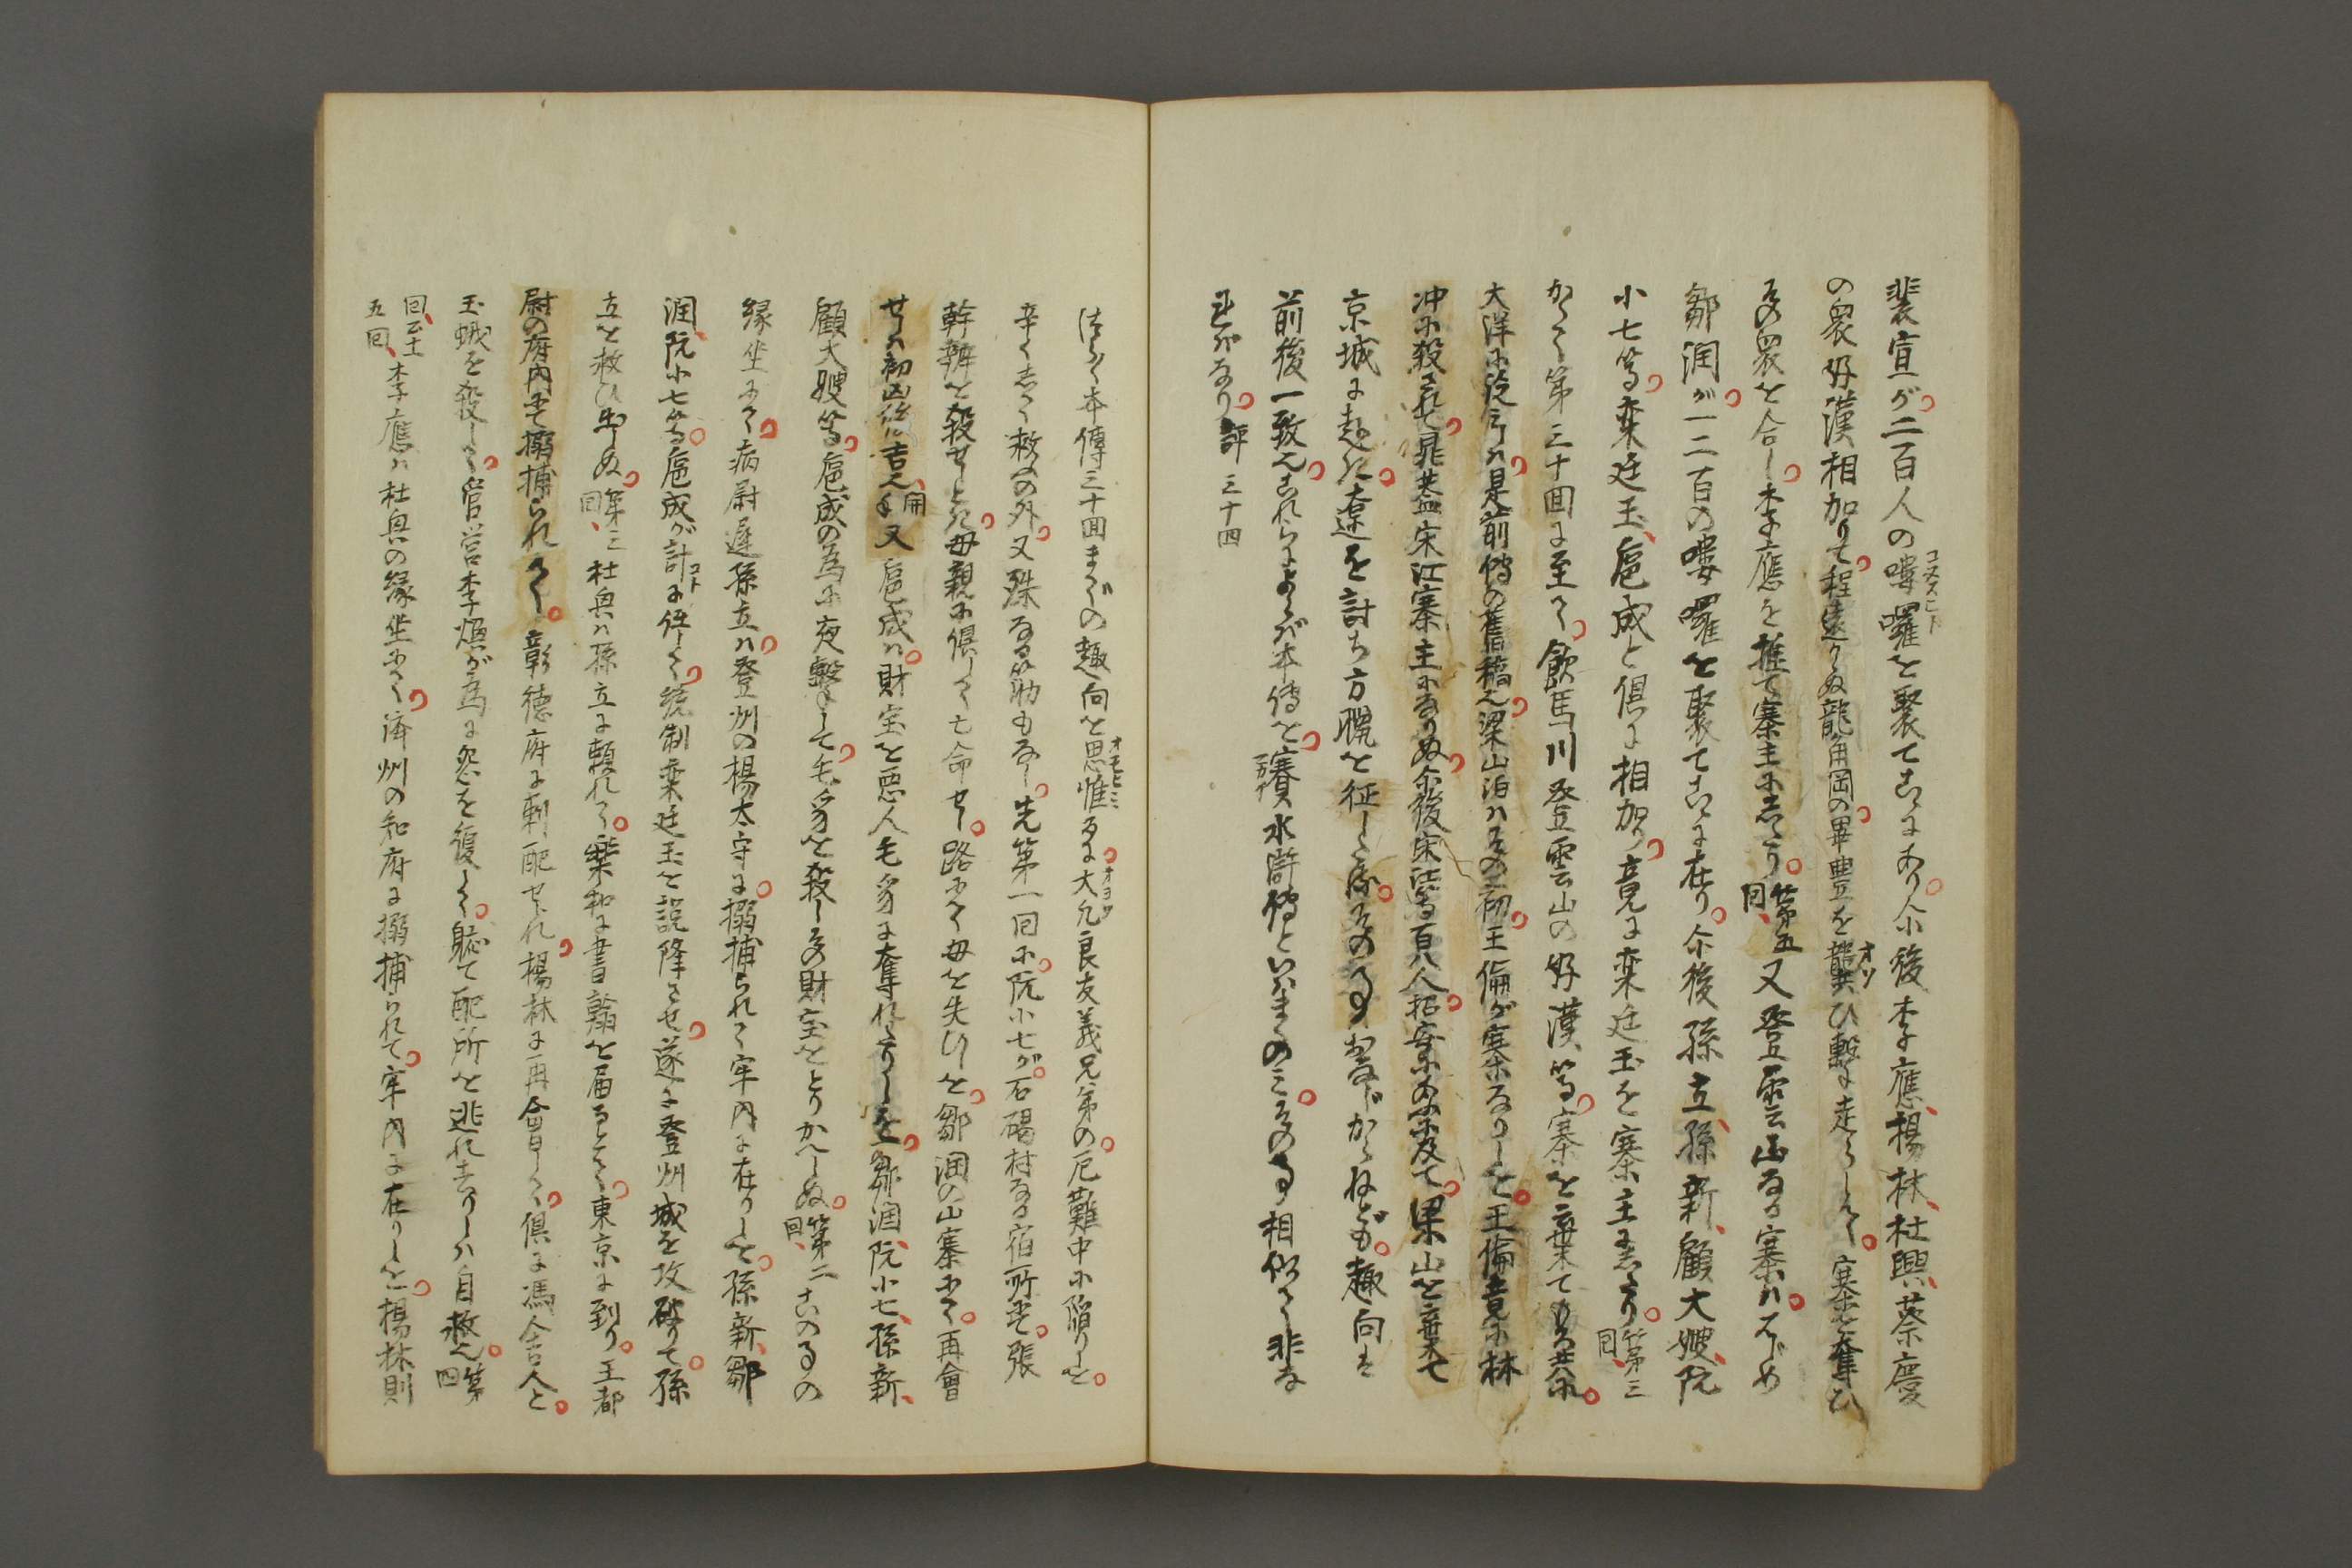 裴宣が二百人の嘍囉を聚てこゝにあり尒後李應、楊林、杜興、蔡慶
の衆好漢相加りて程遠からぬ龍角岡の畢豊を龍共ひ擊に走らして寨を奪ひ
その衆を合し李應を推て寨主にしたり第五回、又登雲山なる寨ははじめ
鄒潤が一二百の嘍囉を聚てこゝに在り尒後孫立、孫新、顧大嫂、阮
小七等欒廷玉、扈成と倶に相加り竟に欒廷玉を寨主にしたり第三回、
かくて第三十回に至て飲馬川登雲山の好漢等寨を棄てもろ共に
大洋に泛ぶは是前傳の舊稿也梁山泊はその初王倫が寨なりしを王倫竟に林
冲に殺されて晁蓋宋江寨主になりぬ尒後宋江等百八人招安に及て梁山を棄て
京城に赴き遼を討ち方臘を征しゝ その事おなじからねども趣向は
前後一致也これらによらば本傳を賽水滸傳といはまくのみその事相似て非な
ればなり評三十四
つらつら本傳三十回までの趣向を思惟るに大凡良友義兄弟の厄難中に陥りしを
辛くして救ふの外又殊なる筋もなし先第一回に阮小七が石碣村なる宿所にて張
幹辦を殺せしとき母親に倶して亡命せし路にて母を失ひしを鄒潤の山寨にて再會
せしは初凶後吉也開手又扈成は財宝を悪人毛豸に奪れたりしを鄒潤、阮小七、孫新、
顧大嫂等扈成の為に夜擊して毛豸を殺しその財宝をとりかへしぬ第二回、このことの
縁坐にて病尉遲孫立は登州の楊太守に搦捕られて牢内に在りしを孫新、鄒
潤、阮小七等扈成が計に任して統制欒廷玉を説降させ遂に登州城を攻破りて孫
立を救ひ出しぬ第三回、杜興は孫立に頼れて樂和に書翰を届るとて東京に到り王都
尉の府内にて搦捕られて彰徳府に刺配せられ楊林に再會して倶に馮舍人と
玉娥を殺して管營李煥が為に怨を復して軈て配所を逃れ去りしは自救也第四
回至十五回、李應は杜興の縁坐にて済州の知府に搦捕られて牢内に在りしを楊林則